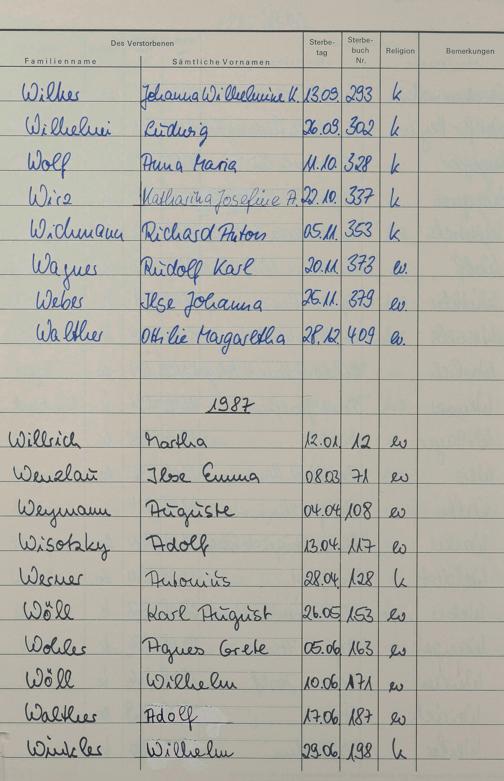 Des Verstorbenen Sterbe- Sterbe-
Familienname Sämtliche Vornamen tag buch Nr. Religion Bemerkungen
Wilker Johanna Wilhelmine K. 13.09. 293 k
Wilhelmi Ludwig 26.09. 302 k
Wolf Anna Maria 11.10. 328 k
Wirz Katharina Josefine A. 22.10. 337 k
Wichmann Richard Anton 05.11. 353 k
Wagner Rudolf Karl 20.11. 373 ev.
Weber Ilse Johanna 26.11. 379 ev.
Walther Ottilie Margaretha 28.12 409 ev.
1987
Willrich Martha 12.01. 12 ev
Wenzlau Ilse Emma 08.03 71 ev
Weymann Auguste 04.04 108 ev
Wisotzky Adolf 13.04. 117 ev
Werner Antonius 28.04. 128 k
Wöll Karl August 26.05 153 ev
Wohler Agnes Grete 05.06. 163 ev
Wöll Wilhelm 10.06 171 ev
Walther Adolf 17.06 187 ev
Winkler Wilhelm 29.06. 198 k